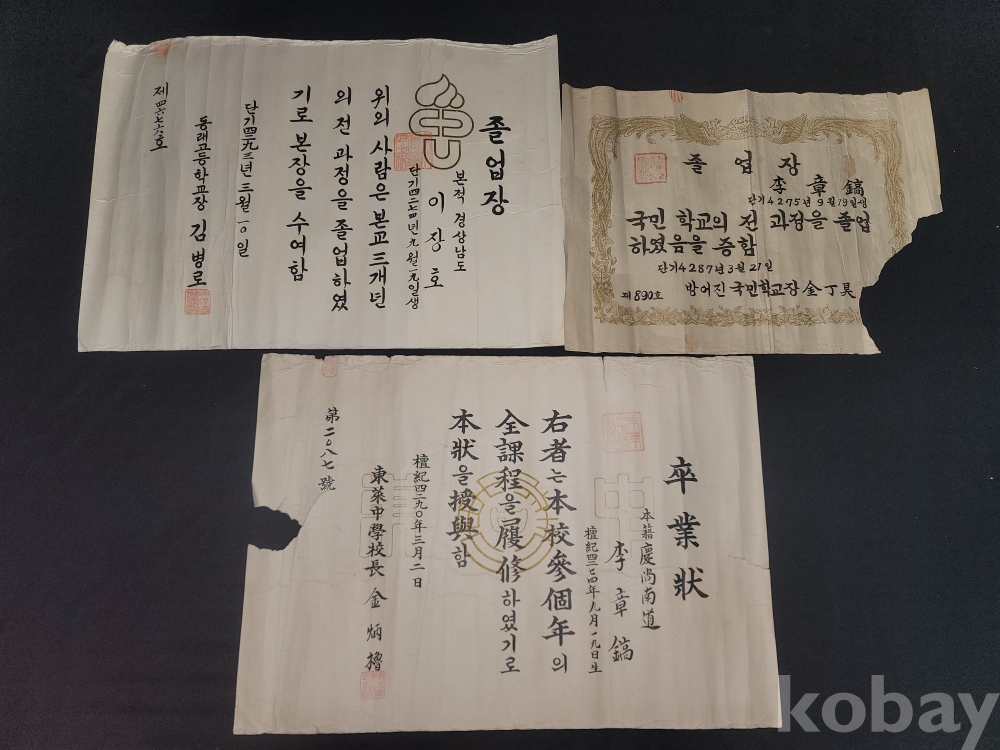 졸업장
본적 경상남도
이장호
단기四二七四년九월一九일생
위의 사람은 본교 三개년
의 전 과정을 졸업하였
기로 본장을 수여함
단기四二九三년三월一〇일
동래고등학교장 김병로
제四六七六호
졸업장
李章鎬
단기4275년9월19일생
국민학교의 전 과정을 졸업
하였음을 증함
단기4287년3월21일
방어진국민학교장 金丁昊
제890호
卒業狀
本藉慶尚南道
李章鎬
檀紀四二七四年九月一九日生
右者는本校參個年의
全課程을履修하였기로
本狀을授與함
檀紀四二九〇年三月二日
東萊中學校長 金炳擼
第二〇八七號
kobay